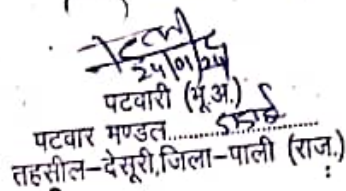 24/01/24
पटवारी (भू.अ.)
पटवार मण्डल....................
तहसील-देसूरी,जिला-पाली (राज.)